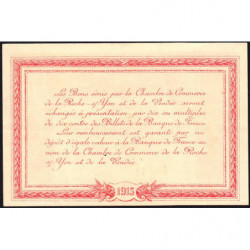 Les Bons émis par la Chambre de Commerce
de la Roche s/ Yon et de la Vendée seront
échangés à présentation, par dix ou multiples
de dix contre des Billets de la Banque de France.
Leur remboursement est garanti par un
dépôt d'égale valeur à la Banque de France au
nom de la Chambre de Commerce de la Roche
s/ Yon et de la Vendée.
1915